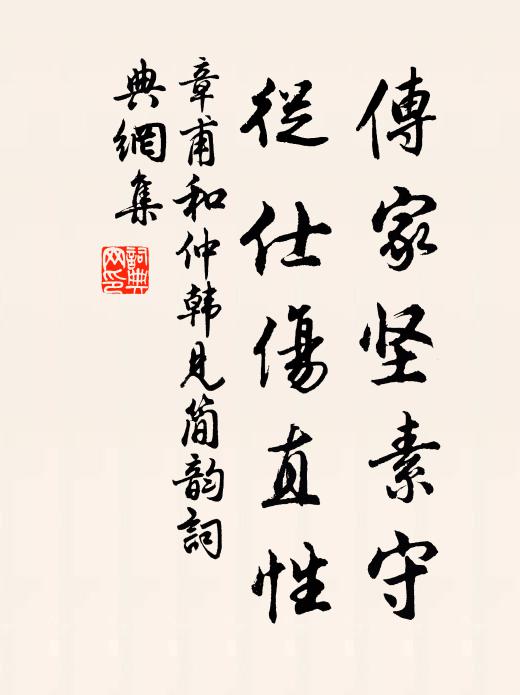 傳家坚素守
從仕傷直性
章甫和仲韩見简韵詞
典網集
詞典网印